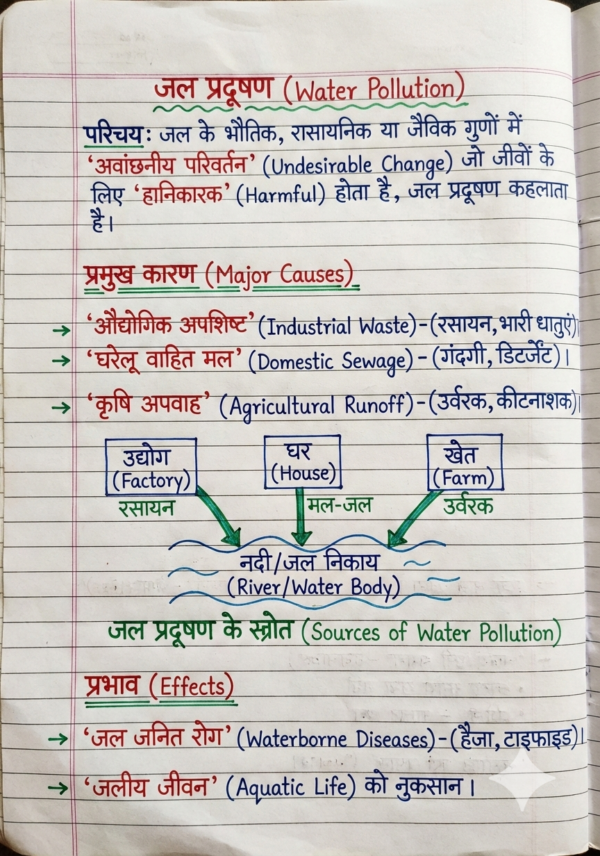 जल प्रदूषण (Water Pollution)
परिचय: जल के भौतिक, रासायनिक या जैविक गुणों में
'अवांछनीय परिवर्तन' (Undesirable Change) जो जीवों के
लिए 'हानिकारक' (Harmful) होता है, जल प्रदूषण कहलाता
है।
प्रमुख कारण (Major Causes)
→ 'औद्योगिक अपशिष्ट' (Industrial Waste)-(रसायन, भारी धातुएं)
→ 'घरेलू वाहित मल' (Domestic Sewage) - (गंदगी, डिटर्जेंट)।
→ 'कृषि अपवाह' (Agricultural Runoff)-(उर्वरक, कीटनाशक)।
उद्योग
(Factory)
घर
(House)
खेत
(Farm)
रसायन
मल-जल
उर्वरक
नदी/जल निकाय
(River/Water Body)
जल प्रदूषण के स्त्रोत (Sources of Water Pollution)
प्रभाव (Effects)
→ 'जल जनित रोग' (Waterborne Diseases)-(हैजा, टाइफाइड)।
→ 'जलीय जीवन' (Aquatic Life) को नुकसान।